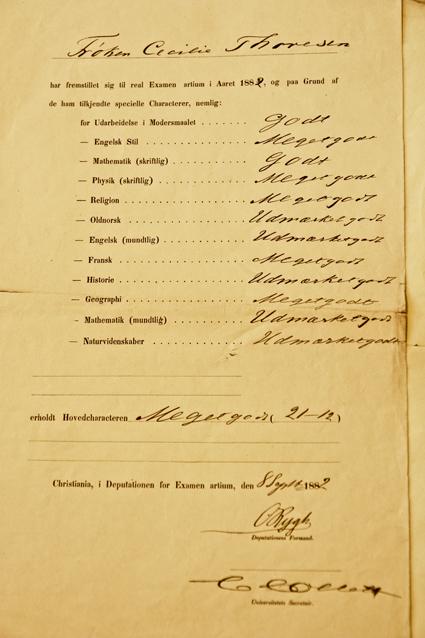 Frøken Cecilie Thoresen
har fremstillet sig til real Examen artium i Aaret 1882, og paa Grund af
de ham tilkjendte specielle Characterer, nemlig:
for Udarbeidelse i Modersmaalet . . . . . . . Godt
— Engelsk Stil . . . . . . . . . . . . . Megetgodt
— Mathematik (skriftlig) . . . . . . . . . . Godt
— Physik (skriftlig) . . . . . . . . . . . . Megetgodt
— Religion . . . . . . . . . . . . . . . . Megetgodt
— Oldnorsk . . . . . . . . . . . . . . . . Udmærketgodt
— Engelsk (mundtlig) . . . . . . . . . . . Udmærketgodt
— Fransk . . . . . . . . . . . . . . . . Megetgodt
— Historie . . . . . . . . . . . . . . . . Udmærketgodt
— Geographi . . . . . . . . . . . . . . . Megetgodt
- Mathematik (mundtlig) . . . . . . . . . . Udmærketgodt
— Naturvidenskaber . . . . . . . . . . . . Udmærketgodt
erholdt Hovedcharacteren Megetgodt (21-12)
Christiania, i Deputationen for Examen artium, den 8 Septb. 1882
O Rygh
Deputationens Formand.
Universitetets Secretair.